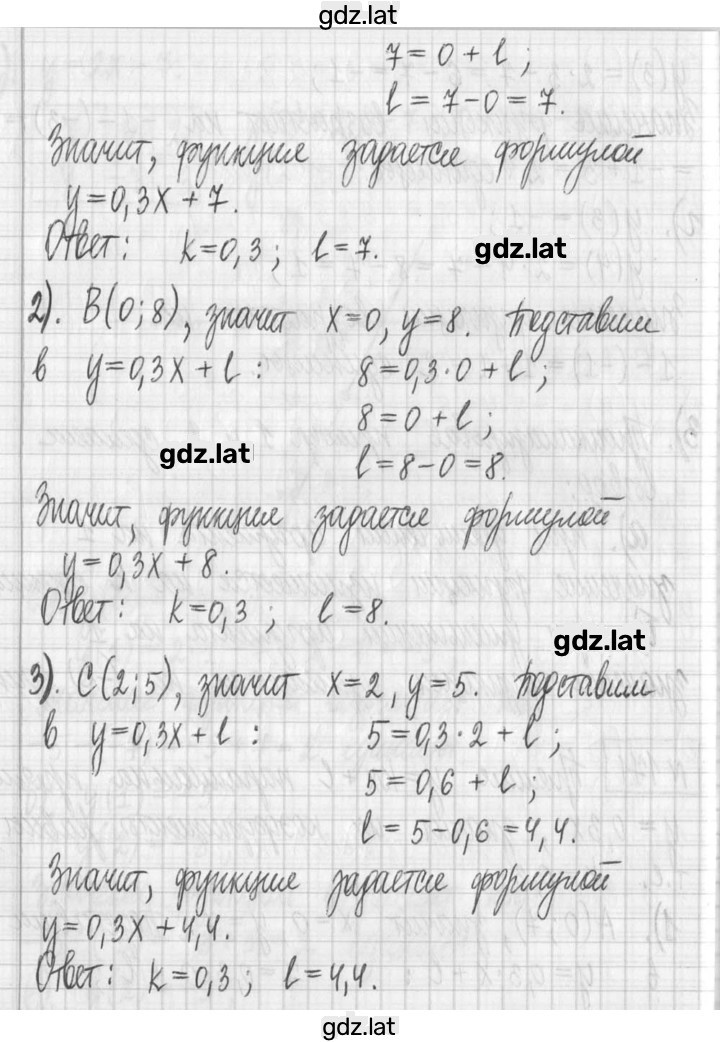 gdz.lat
7 = 0 + l ;
l = 7-0 = 7.
Значит, функция задается формулой
y=0,3x + 7.
Ответ: k=0,3 ; l=7.
gdz.lat
2). B(0;8), значит x=0, y=8. Подставим
в y=0,3x + l : 8=0,3·0 + l ;
8=0+l ;
gdz.lat
l=8-0=8.
Значит, функция задается формулой
y=0,3x + 8.
Ответ: k=0,3 ; l=8.
gdz.lat
3). C(2;5), значит x=2, y=5. Подставим
в y=0,3x + l : 5=0,3·2 + l ;
5=0,6 + l ;
l = 5-0,6 = 4,4.
Значит, функция задается формулой
y=0,3x + 4,4.
Ответ: k=0,3 ; l=4,4.
gdz.lat